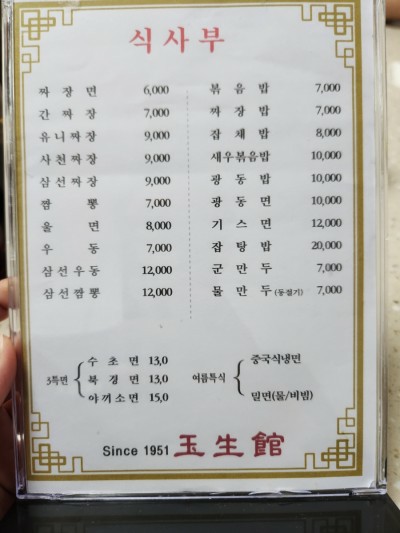 식사부
짜장면 6,000
간짜장 7,000
유니짜장 9,000
사천짜장 9,000
삼선짜장 9,000
짬뽕 7,000
울면 8,000
우동 7,000
삼선우동 12,000
삼선짬뽕 12,000
볶음밥 7,000
짜장밥 7,000
잡채밥 8,000
새우볶음밥 10,000
광동밥 10,000
광동면 10,000
기스면 12,000
잡탕밥 20,000
군만두 7,000
물만두 (동절기) 7,000
3특면
수초면 13,0
북경면 13,0
야끼소면 15,0
여름특식
중국식냉면
밀면(물/비빔)
Since 1951 玉生館